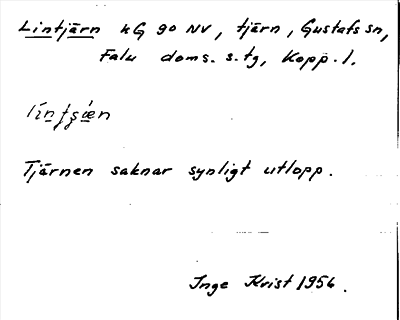 Lintjärn kG 90 NV, tjärn, Gustafs sn,
Falu doms. s. tg, Kopp. l.
Tjärnen saknar synligt utlopp.
Inge Kvist 1956.